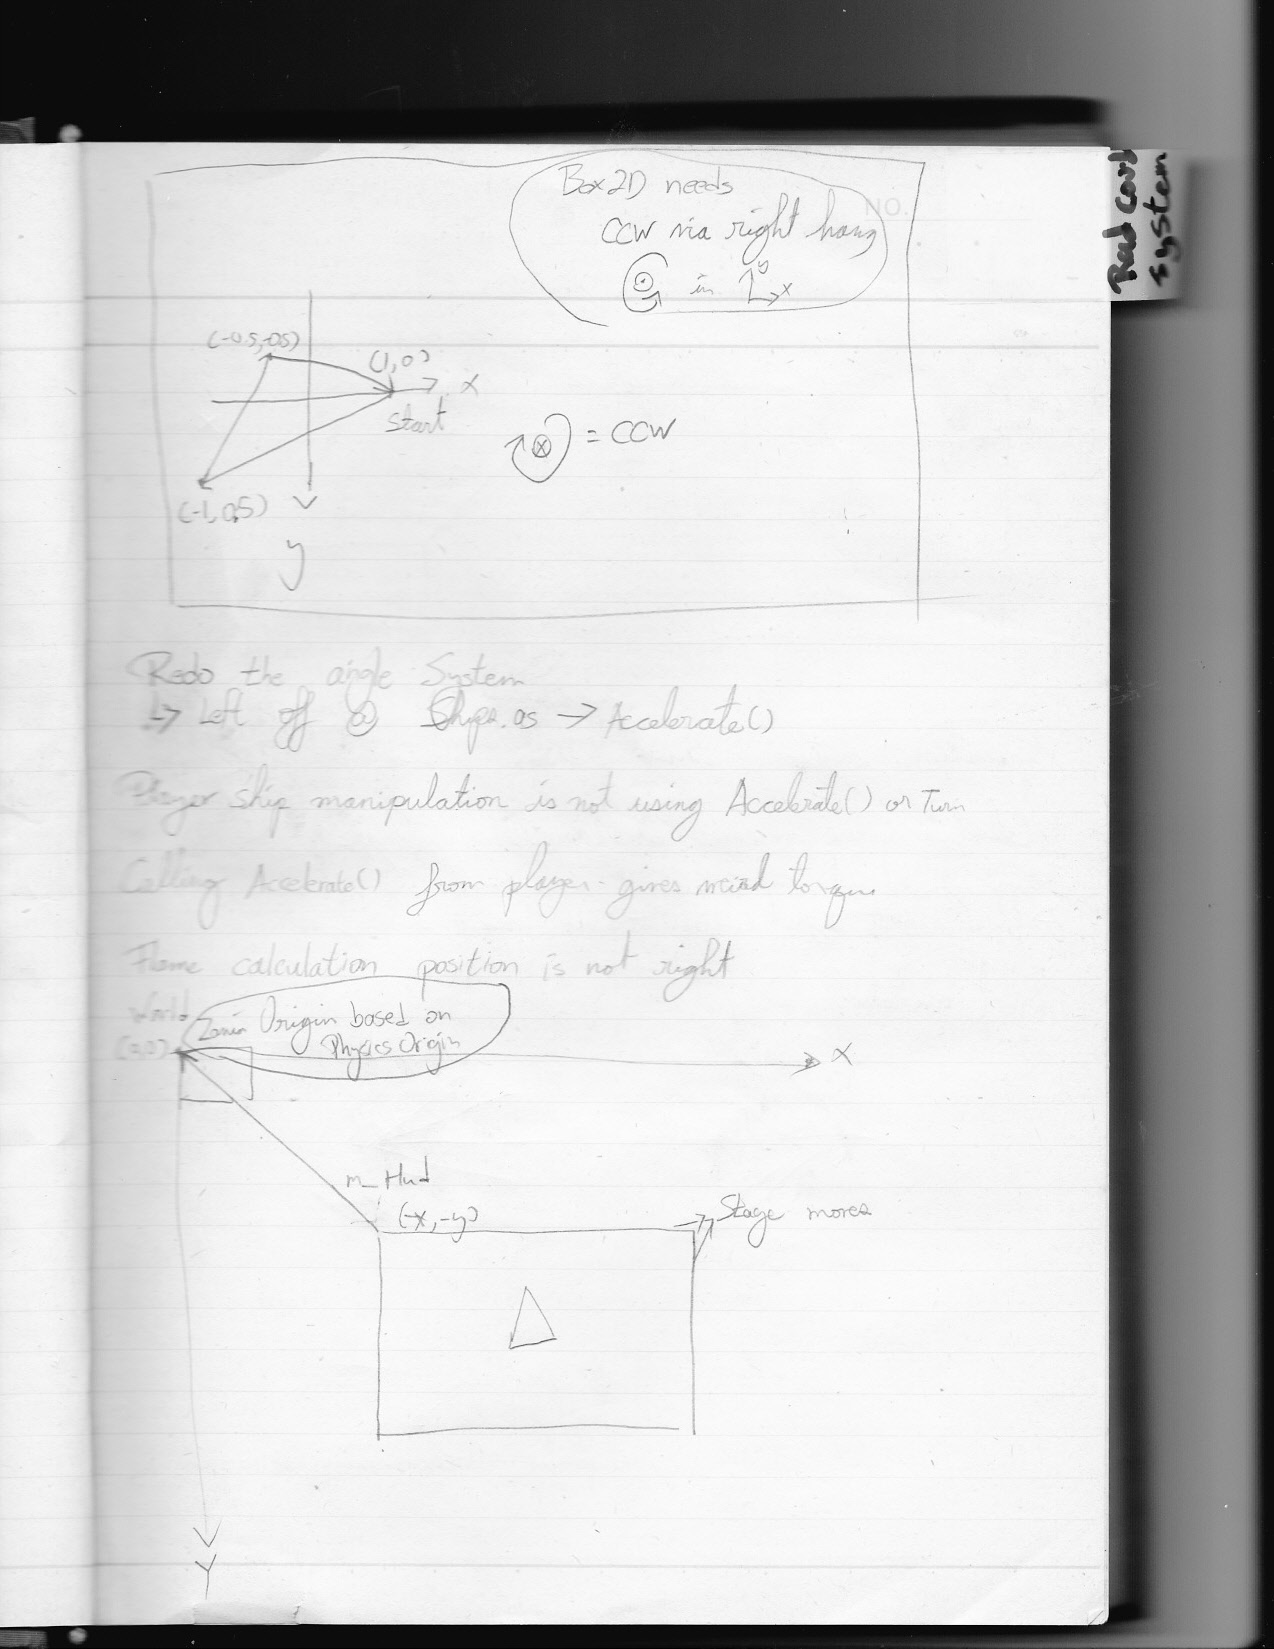 Box2D needs
CCW via right hang
in y x
NO.
system
(-0.5,-0.5)
(1,0)
x
Start
= CCW
(-1,0.5)
y
Redo the angle System
↳ Left off @ Ships.as → Accelerate()
Player ship manipulation is not using Accelerate() or Turn
Calling Accelerate() from player gives weird torque
Flame calculation position is not right
World
(0,0)
Origin based on
Physics Origin
X
m_Hud
(-x,-y)
Stage moves
Y